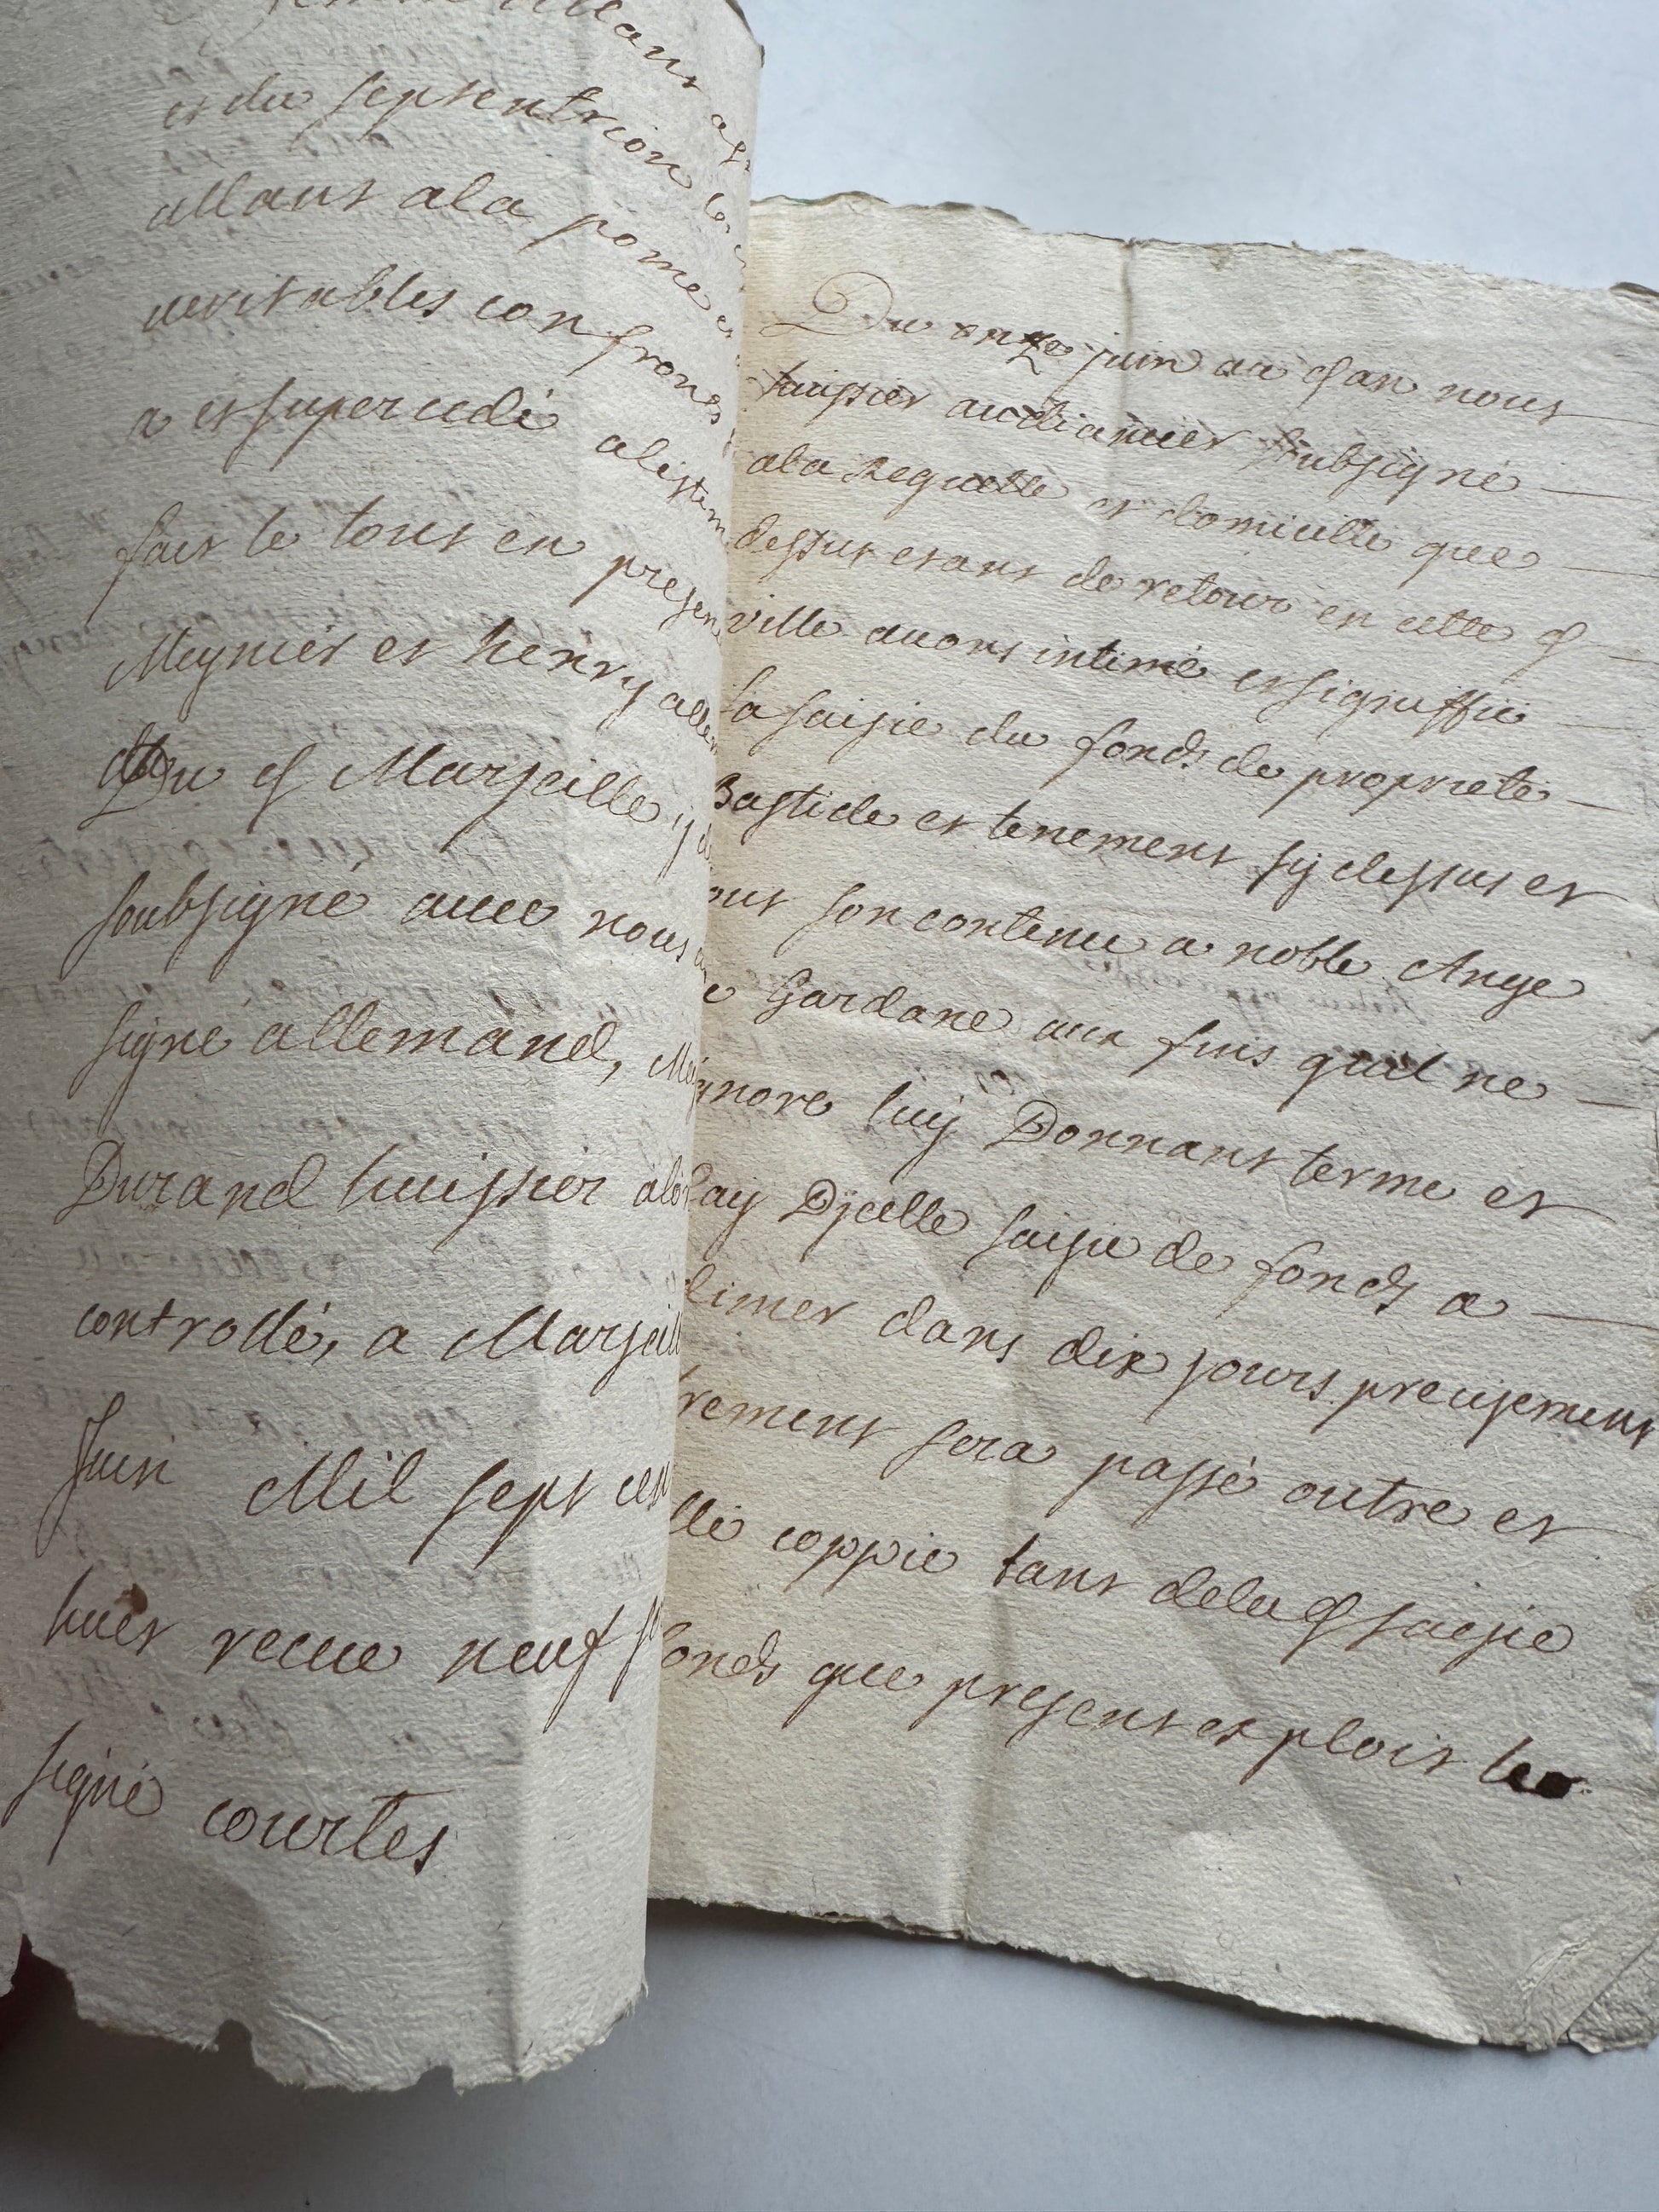 allant a
et du septentrion le
allant ala pome
veritables confronts
a et supercedé
fait le tout en presen
Meynier et henry allem
du d Marseille
soubsigné avec nous
signé allemand, Mey
Durand huissier
controllé, a Marseill
Juin Mil sept cen
huit receu neuf
signé courtes
Du onze juin au d an nous
huissier audiancier soubsigné
ala Requette et domicille que
dessus estant de retour en cette d
ville avons intimé et signiffié
la saisie du fonds de proprieté
Bastide et tenement sy dessus et
out son contenu a noble Ange
e Gardane aux fins qu'il ne
gnore luy Donnant terme et
lay Dycelle saisie de fonds a
dimer dans dix jours precisement
rement sera passé outre et
llé coppie tant dela d saisie
fonds que present exploit